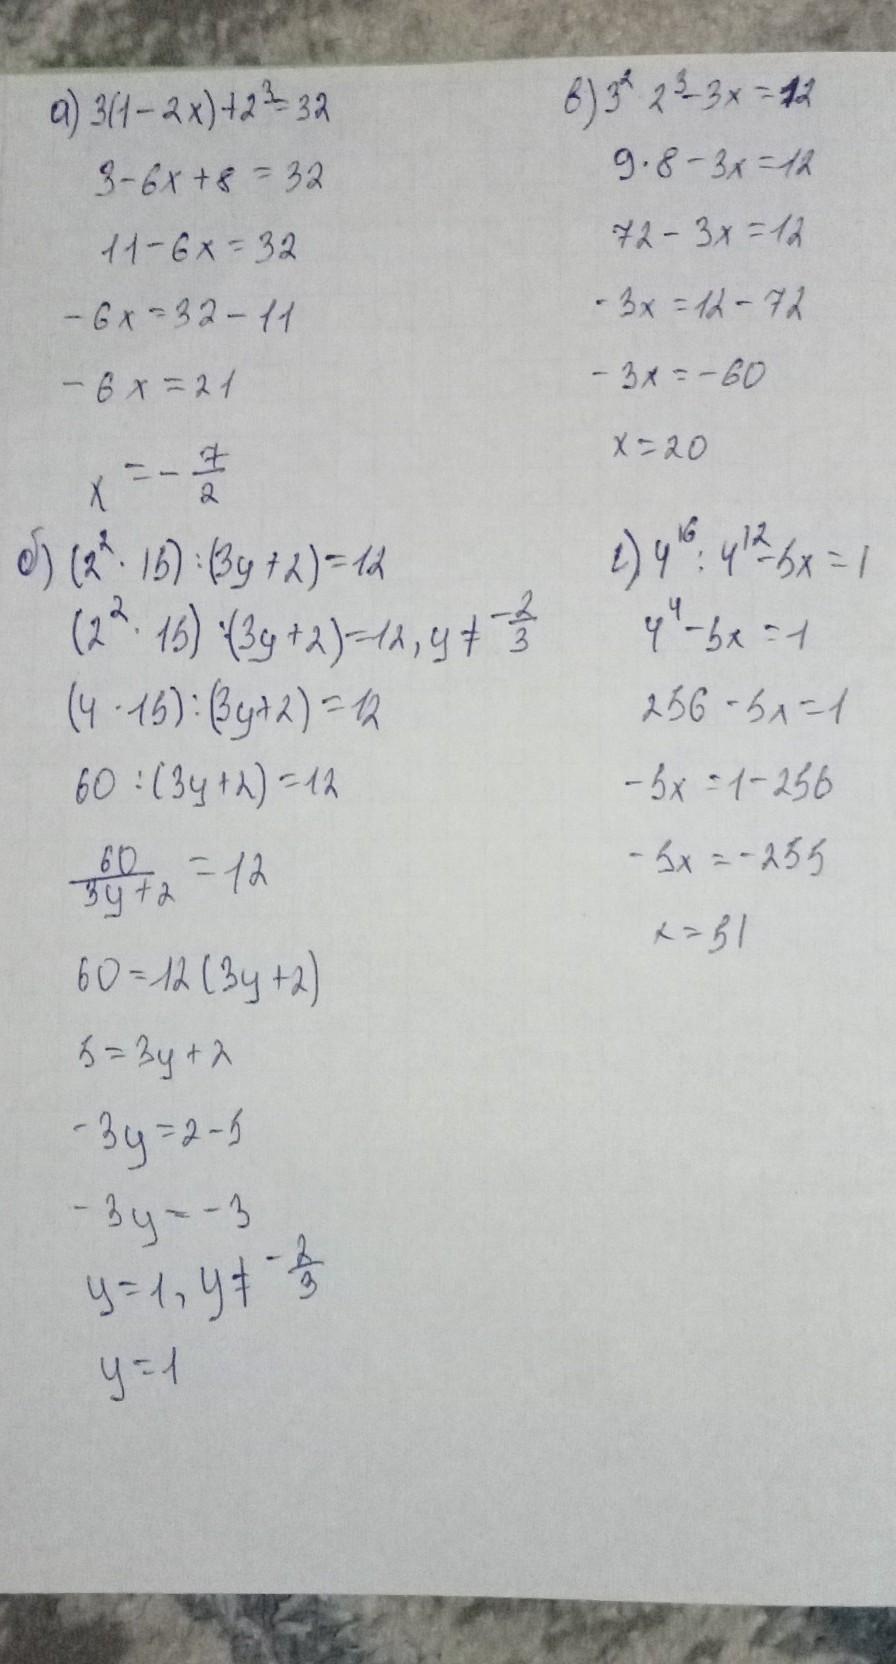 а) 3(1-2x)+2³=32
3-6x+8=32
11-6x=32
-6x=32-11
-6x=21
x=-7/2
б) (2²·15):(3y+2)=12
(2²·15):(3y+2)=12, y≠-2/3
(4·15):(3y+2)=12
60:(3y+2)=12
60/(3y+2)=12
60=12(3y+2)
5=3y+2
-3y=2-5
-3y=-3
y=1, y≠-2/3
y=1
в) 3² 2³-3x=12
9·8-3x=12
72-3x=12
-3x=12-72
-3x=-60
x=20
г) 4¹⁶:4¹²-5x=1
4⁴-5x=1
256-5x=1
-5x=1-256
-5x=-255
x=51